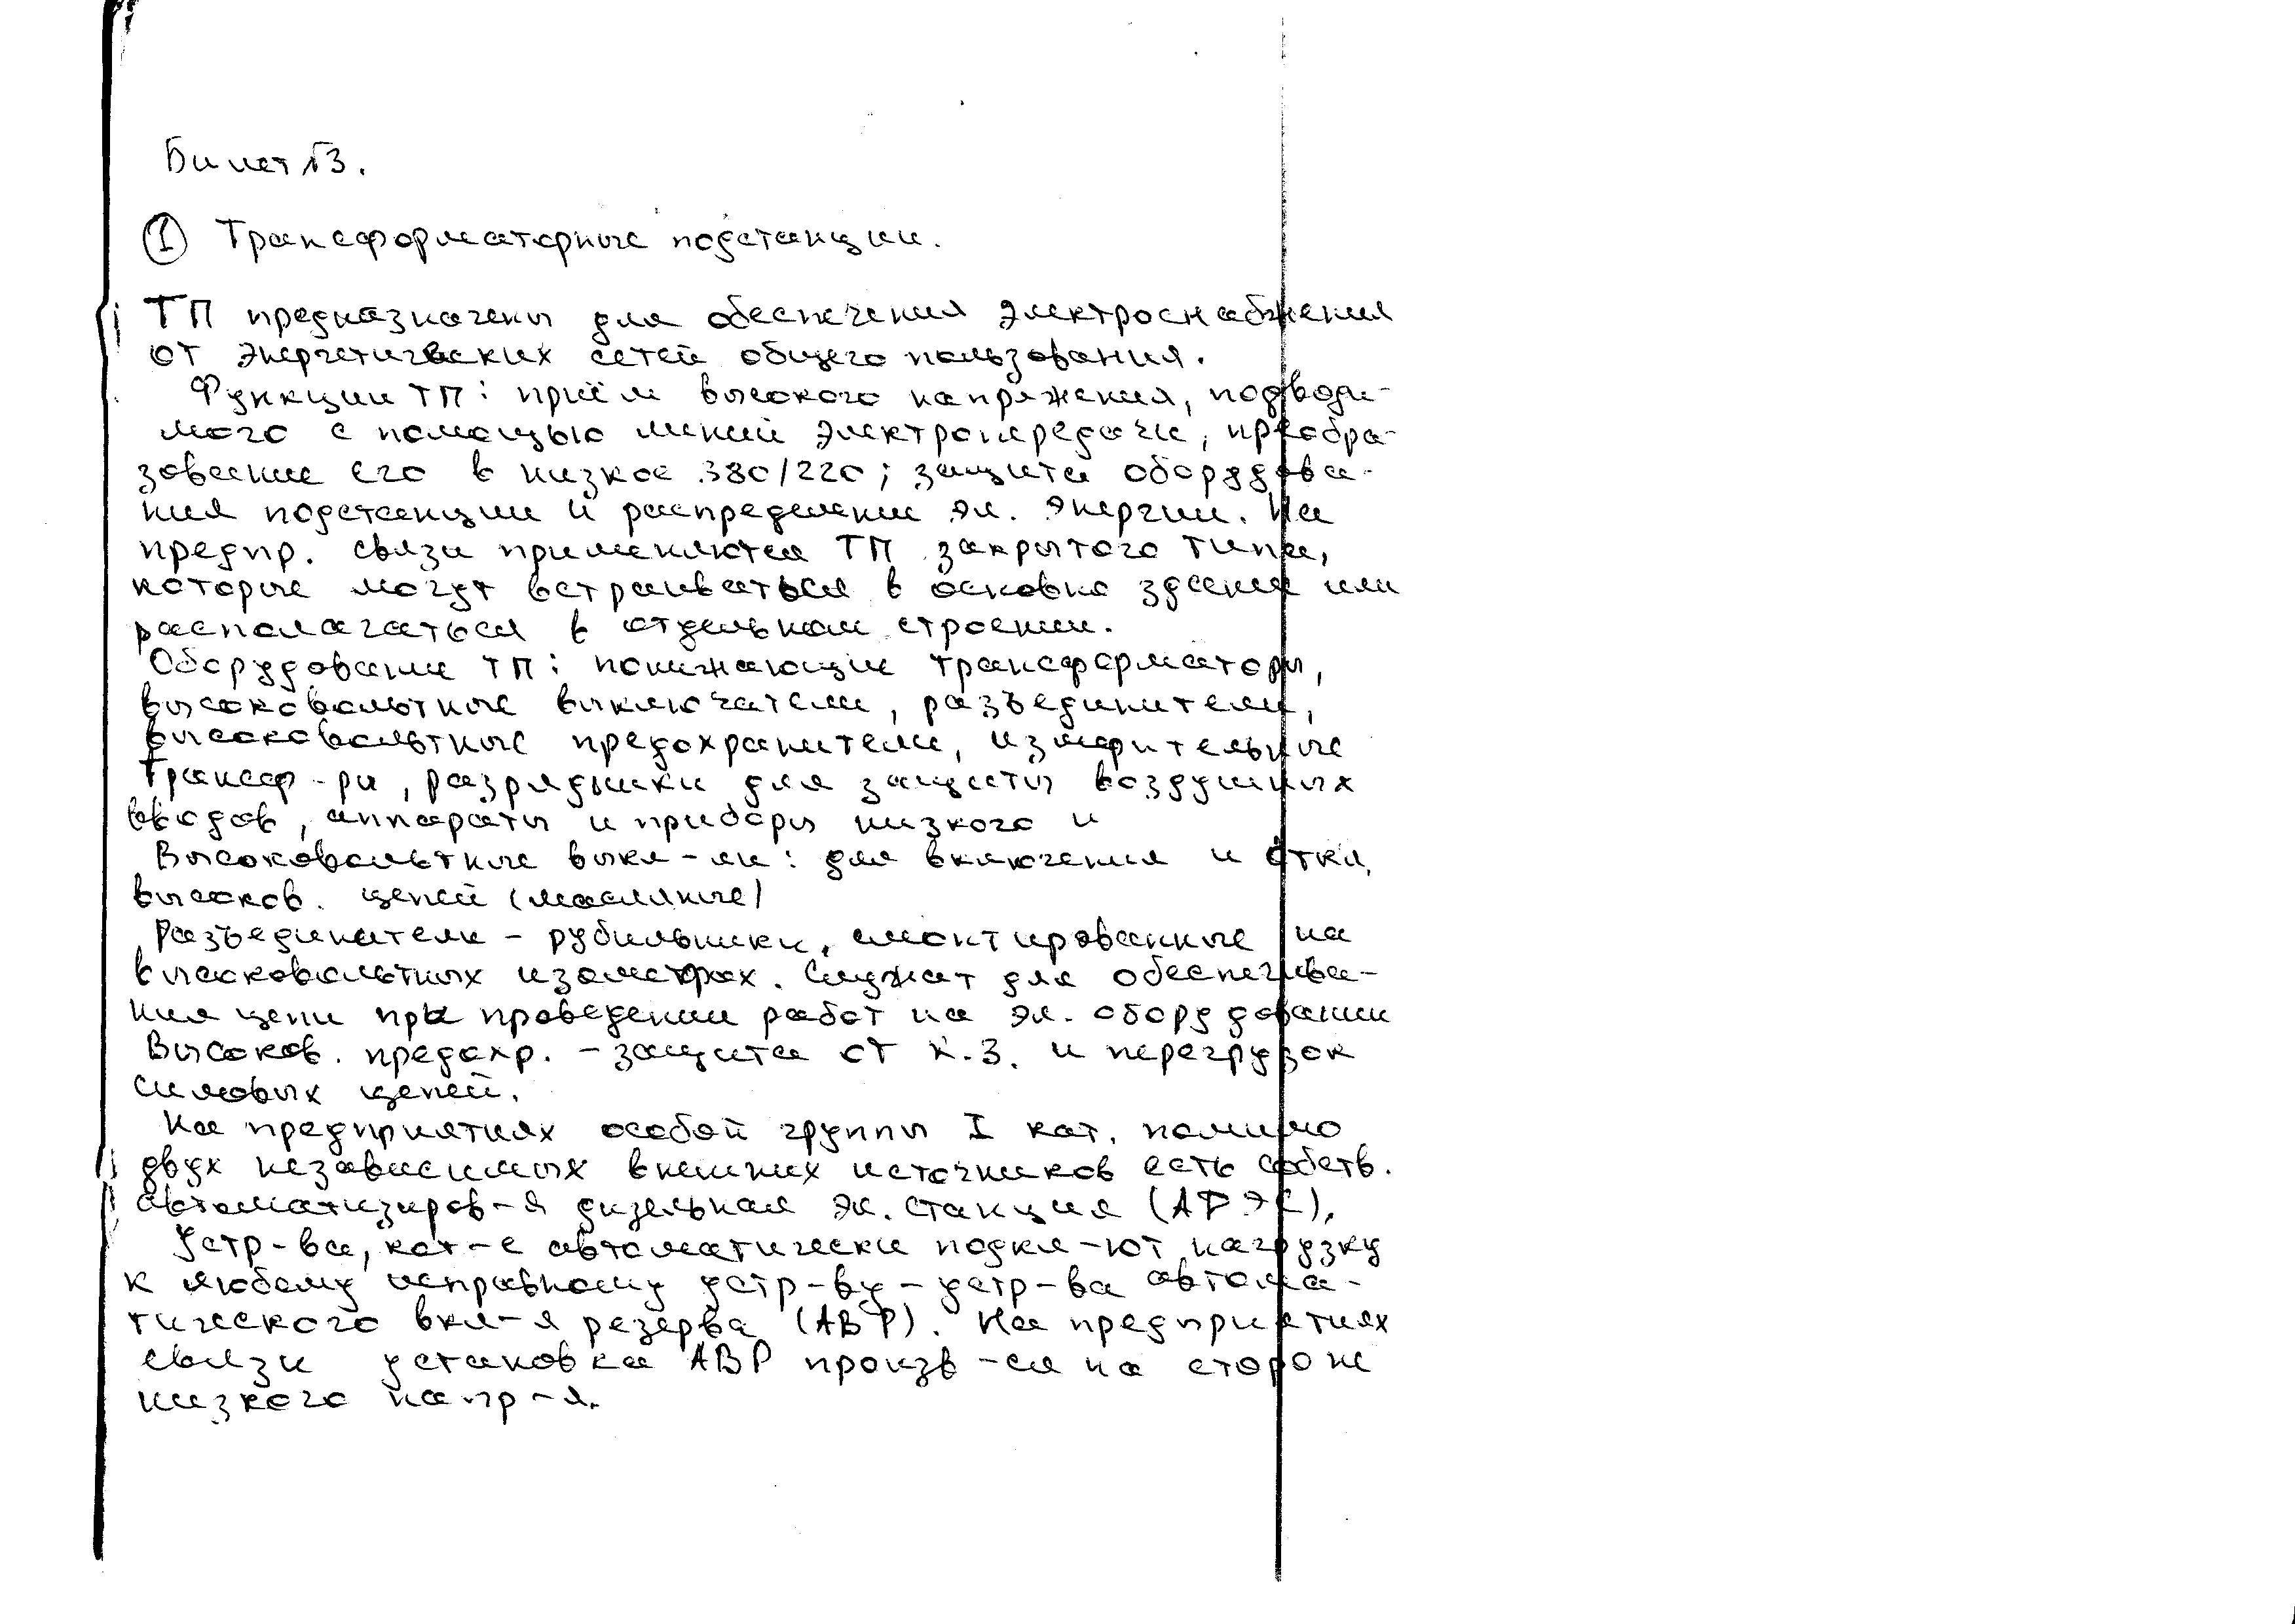 Билет №3.
① Трансформаторные подстанции.
ТП предназначены для обеспечения электроснабжения
от энергетических сетей общего пользования.
Функции ТП: приём высокого напряжения, подводи-
мого с помощью линий электропередачи, преобра-
зование его в низкое 380/220; защита оборудова-
ния подстанции и распределение эл. энергии. На
предпр. связи применяются ТП закрытого типа,
которые могут встраиваться в основно здание или
располагаться в отдельном строении.
Оборудование ТП: понижающие трансформаторы,
высоковольтные выключатели, разъединители,
высоковольтные предохранители, измерительные
трансф-ры, разрядники для защиты воздушных
вводов, аппараты и приборы низкого и
Высоковольтные выкл-ли: для включения и откл.
высоков. цепей (масляные)
Разъединители - рубильники, смонтированные на
высоковольтных изоляторах. Служат для обеспечива-
ния цепи при проведении работ на эл. оборудовании
Высоков. предохр. - защита от К.З. и перегрузок
силовых цепей.
На предприятиях особой группы I кат. помимо
двух независимых внешних источников есть собств.
автоматизиров-я дизельная эл. станция (АДЭС).
Устр-ва, кот-е автоматически подкл-ют нагрузку
к любому исправному устр-ву - устр-ва автома-
тического вкл-я резерва (АВР). На предприятиях
связи установка АВР произв-ся на стороне
низкого напр-я.